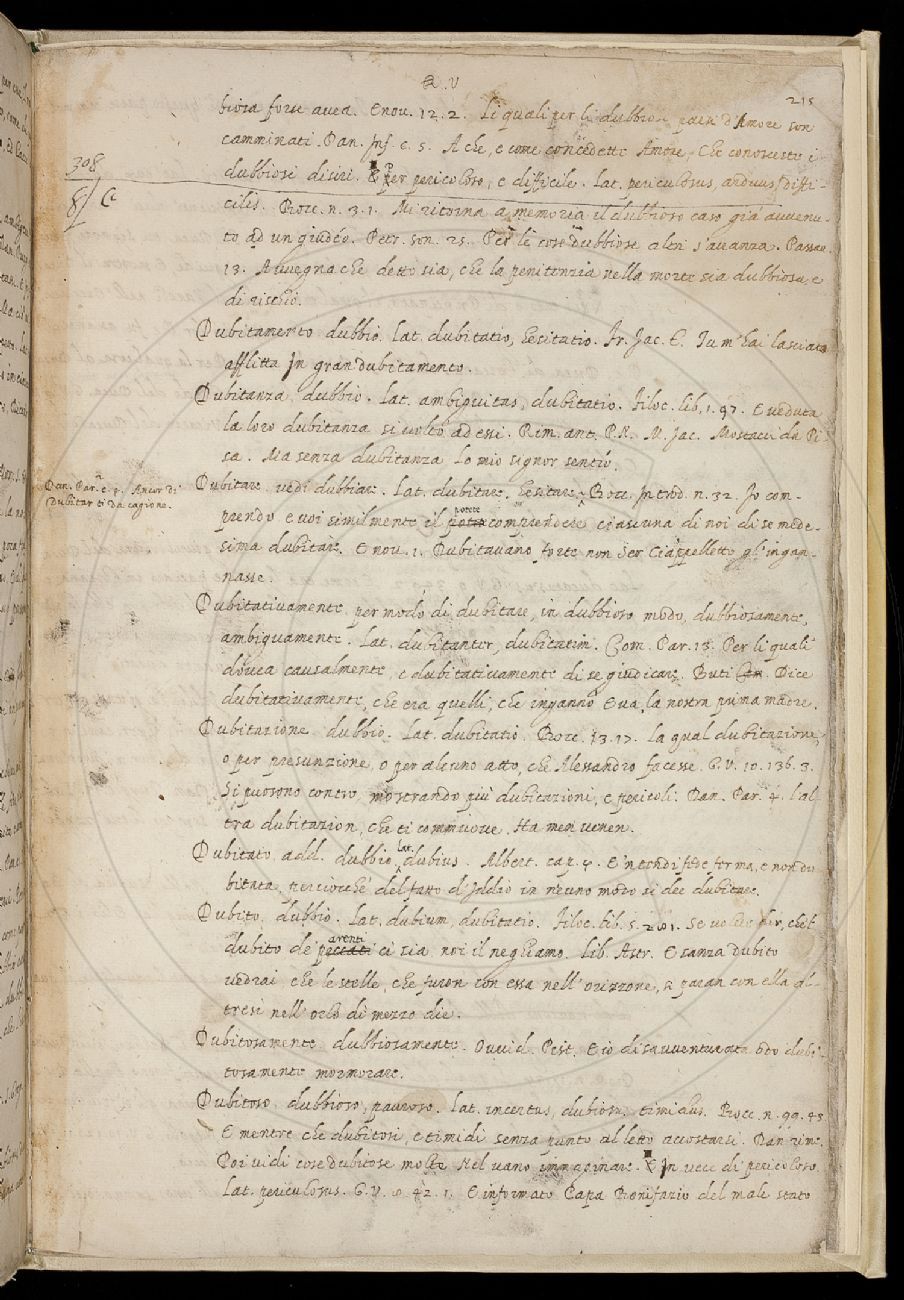 D.V
215
biosa forse avea. E nov. 12. 2. Li quali per li dubbiosi paesi d'Amore son
camminati. Dan. Inf. c. 5. A che, e come concedette Amore, Che conosceste i
308
dubbiosi disiri. Per pericoloso, e difficile. Lat. periculosus, arduus, diffi-
8/ C
cilis. Bocc. n. 3. 1. Mi ritorna a memoria il dubbioso caso già avvenu-
to ad un giudéo. Petr. son. 25. Per le cose dubbiose altri s'avanza. Passav.
13. Avvegna che detto sia, che la penitenzia nella morte sia dubbiosa, e
di rischio.
Dubitamento dubbio. Lat. dubitatio, hesitatio. Fr. Jac. T. Tu m'hai lasciata
afflitta In gran dubitamento.
Dubitanza, dubbio. Lat. ambiguitas, dubitatio. Filoc. lib. 1. 97. E veduta
la loro dubitanza si voltò ad essi. Rim. ant. P.N. M. Jac. Mostacci da Pi
sa. Ma senza dubitanza Lo mio signor sentío.
Dan. Par. c. 4. Ancor di
dubitar ti da cagione.
Dubitare. vedi dubbiare. Lat. dubitare, hesitare. Bocc. Introd. n. 32. Io com-
prendo e voi similmente il potere comprendere ciascuna di noi di se mede-
sima dubitare. E nov. 1. Dubitavano forte non Ser Ciappelletto gl'ingan-
nasse.
Dubitativamente, per modo di dubitare, in dubbioso modo, dubbiosamente,
ambiguamente. Lat. dubitanter, dubitatim. Com. Par. 13. Per li quali
dovea causalmente, e dubitativamente di se giudicare. Buti Dice
dubitativamente, che era quelli, che ingannò Eva, la nostra prima madre.
Dubitazione dubbio. Lat. dubitatio. Bocc. 13. 17. la qual dubitazione,
o per presunzione, o per alcuno atto, che Alessandro facesse. G.V. 10. 136. 3.
Si puosono contro, mostrando più dubitazioni, e pericoli. Dan. Par. 4. L'al
tra dubitazion, che ti commuove, Ha men venen.
Dubitato add. dubbio, lat. dubius. Albert. cap. 4. E 'ntendi fede ferma, e non du
bitata, perciocchè del fatto d'Iddio in neuno modo si dee dubitare.
Dubito, dubbio. Lat. dubium, dubitatio. Filoc. lib. 5. 281. Se vo' che
dubito de' parenti ci sia noi il neghiamo. Lib. Astr. E sanza dubito
vedrai, che le stelle, che furon con essa nell'orizzone, saran con ella al-
tresì nell'orlo di mezzo die.
Dubitosamente dubbiosamente. Ovvid. Pist. E io disavventurata odo dubi-
tosamente mormorare.
Dubitoso, dubbioso, pauroso. Lat. incertus, dubiosus, timidus. Bocc. n. 99. 45
E mentre che dubitosi, e timidi senza punto al letto accostarsi. Dan rim.
Poi vidi cose dubitose molte Nel vano immaginare. In vece di pericoloso.
Lat. periculosus. G.V. 8. 42. 1. E informato Papa Bonifazio del male stato